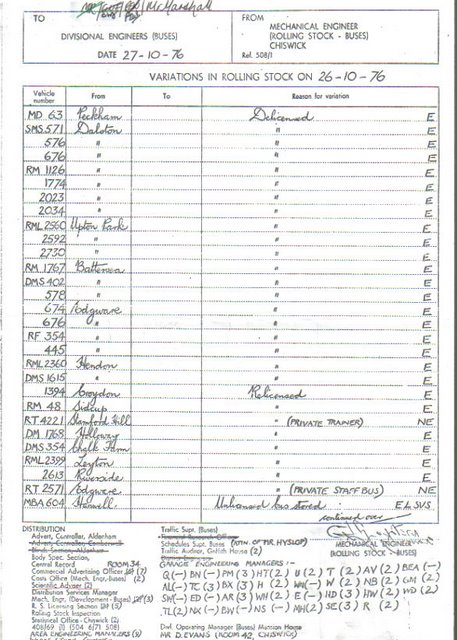 Mr Marshall
TO
DIVISIONAL ENGINEERS (BUSES)
DATE 27-10-76
FROM
MECHANICAL ENGINEER
(ROLLING STOCK - BUSES)
CHISWICK
Ref. 508/1
VARIATIONS IN ROLLING STOCK ON 26-10-76
Vehicle number From To Reason for variation
MD 63 Peckham Delicensed E
SMS 571 Dalston " E
576 " " E
676 " " E
RM 1126 " " E
1774 " " E
2023 " " E
2034 " " E
RML 2560 Upton Park " E
2592 " " E
2730 " " E
RM 1767 Battersea " E
DMS 402 " " E
578 " " E
674 Edgware " E
676 " " E
RF 354 " " E
445 " " E
RML 2360 Hendon " E
DMS 1615 " " E
1394 Croydon Relicensed E
RM 48 Sidcup " E
RT 4221 Stamford Hill " (PRIVATE TRAINER) NE
DM 1768 Holloway " E
DMS 354 Chalk Farm " E
RML 2399 Leyton " E
2613 Riverside " E
RT 2571 Edgware " (PRIVATE STAFF BUS) NE
MBA 604 Hanwell. Unlicensed bus stored : E L SVS
continued over
MECHANICAL ENGINEER
(ROLLING STOCK - BUSES)
DISTRIBUTION
Advert, Controller, Aldenham
Body Spec. Section,
Central Record ROOM 34
Commercial Advertising Officer (7)
Costs Office (Mech. Engr.-Buses) (2)
Scientific Adviser (2)
Distribution Services Manager
Mech. Engr. (Development - Buses) (3)
R. S. Licensing Section (5)
Rolling Stock Inspection
Statistical Office - Chiswick (2)
408/69 (1) 504 6/71 508)
AREA ENGINEERING MANAGERS (3)
Traffic Supt. (Buses)
Financial Research Office
Schedules Supt. Buses (ATTN. OF MR. HYSLOP)
Traffic Auditor, Griffith House (2)
GARAGE ENGINEERING MANAGERS :-
Q (-) BN (-) PM (3) HT (2) U (2) T (2) AV (2) BEA (-)
AE (-) TC (3) BX (3) H (2) WN (-) W (2) NB (2) GM (2)
SW (-) ED (-) AR (3) WH (2) E (-) HD (3) HW (2) WD (2)
TL (2) NX (-) BW (-) NS (-) NH (2) SE (3) R (2)
Divl. Operating Manager (Buses) Manson House
MR D. EVANS (ROOM 42, CHISWICK)